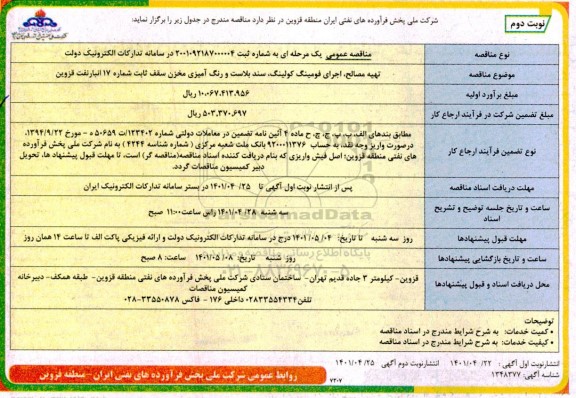 نوبت دوم
شرکت ملی پخش فرآورده های نفتی ایران منطقه قزوین در نظر دارد مناقصه مندرج در جدول زیر را برگزار نماید:
نوع مناقصه
مناقصه عمومی یک مرحله ای به شماره ثبت ۲۰۰۱۰۹۲۱۸۷۰۰۰۰۰۴ در سامانه تدارکات الکترونیک دولت
موضوع مناقصه
تهیه مصالح، اجرای فومینگ کولینگ، سند بلاست و رنگ آمیزی مخزن سقف ثابت شماره ۱۷ انبارنفت قزوین
مبلغ برآورد اولیه
۱۰،۰۶۷،۴۱۳،۹۵۶ ریال
مبلغ تضمین شرکت در فرآیند ارجاع کار
۵۰۳،۳۷۰،۶۹۷ ریال
نوع تضمین فرآیند ارجاع کار
مطابق بندهای الف، ب، پ، ج، چ، ح ماده ۴ آئین نامه تضمین در معاملات دولتی شماره ۱۲۳۴۰۲/ت ۵۰۶۵۹ ه – مورخ ۱۳۹۴/۹/۲۲.
درصورت واریز وجه نقد، به حساب ۹۲۰۰۰۱۱۳۷۶ بانک ملت شعبه مرکزی ( شماره شناسه ۴۲۴۴ ) به نام شرکت ملی پخش فرآورده
های نفتی منطقه قزوین؛ اصل فیش واریزی که بنام دریافت کننده اسناد مناقصه(مناقصه گر) است، تا مهلت قبول پیشنهاد ها، تحویل
دبیر کمیسیون مناقصات گردد.
مهلت دریافت اسناد مناقصه
پس از انتشار نوبت اول آگهی تا ۲۵/ ۱۴۰۱/۰۴ در بستر سامانه تدارکات الکترونیک ایران
ساعت و تاریخ جلسه توضیح و تشریح
اسناد
سه شنبه ۲۸/ ۱۴۰۱/۰۴ راس ساعت ۱۱:۰۰ صبح
مهلت قبول پیشنهادها
روز سه شنبه تا تاریخ: ۰۴/ ۱۴۰۱/۰۵ درج در سامانه تدارکات الکترونیک دولت و ارائه فیزیکی پاکت الف تا ساعت ۱۴ همان روز
ساعت و تاریخ بازگشایی پیشنهادها
روز شنبه تاریخ: ۰۸/ ۱۴۰۱/۰۵ ساعت: ۸ صبح
محل دریافت اسناد و قبول پیشنهادها
قزوین- کیلومتر ۳ جاده قدیم تهران- ساختمان ستادی شرکت ملی پخش فرآورده های نفتی منطقه قزوین- طبقه همکف- دبیرخانه
کمیسیون مناقصات
تلفن ۰۲۸۳۳۵۵۴۳۳۴ داخلی ۱۷۶ - فاکس ۳۳۵۵۰۸۷۸-۰۲۸
توضیحات:
• کمیت خدمات: به شرح شرایط مندرج در اسناد مناقصه
• کیفیت خدمات: به شرح شرایط مندرج در اسناد مناقصه
انتشارنوبت اول آگهی: ۲۲/ ۱۴۰۱/۰۴ انتشارنوبت دوم آگهی ۲۵/ ۱۴۰۱/۰۴
شناسه آگهی: ۱۳۴۸۳۷۷
۷۲۰۷
روابط عمومی شرکت ملی پخش فرآورده های نفتی ایران - منطقه قزوین